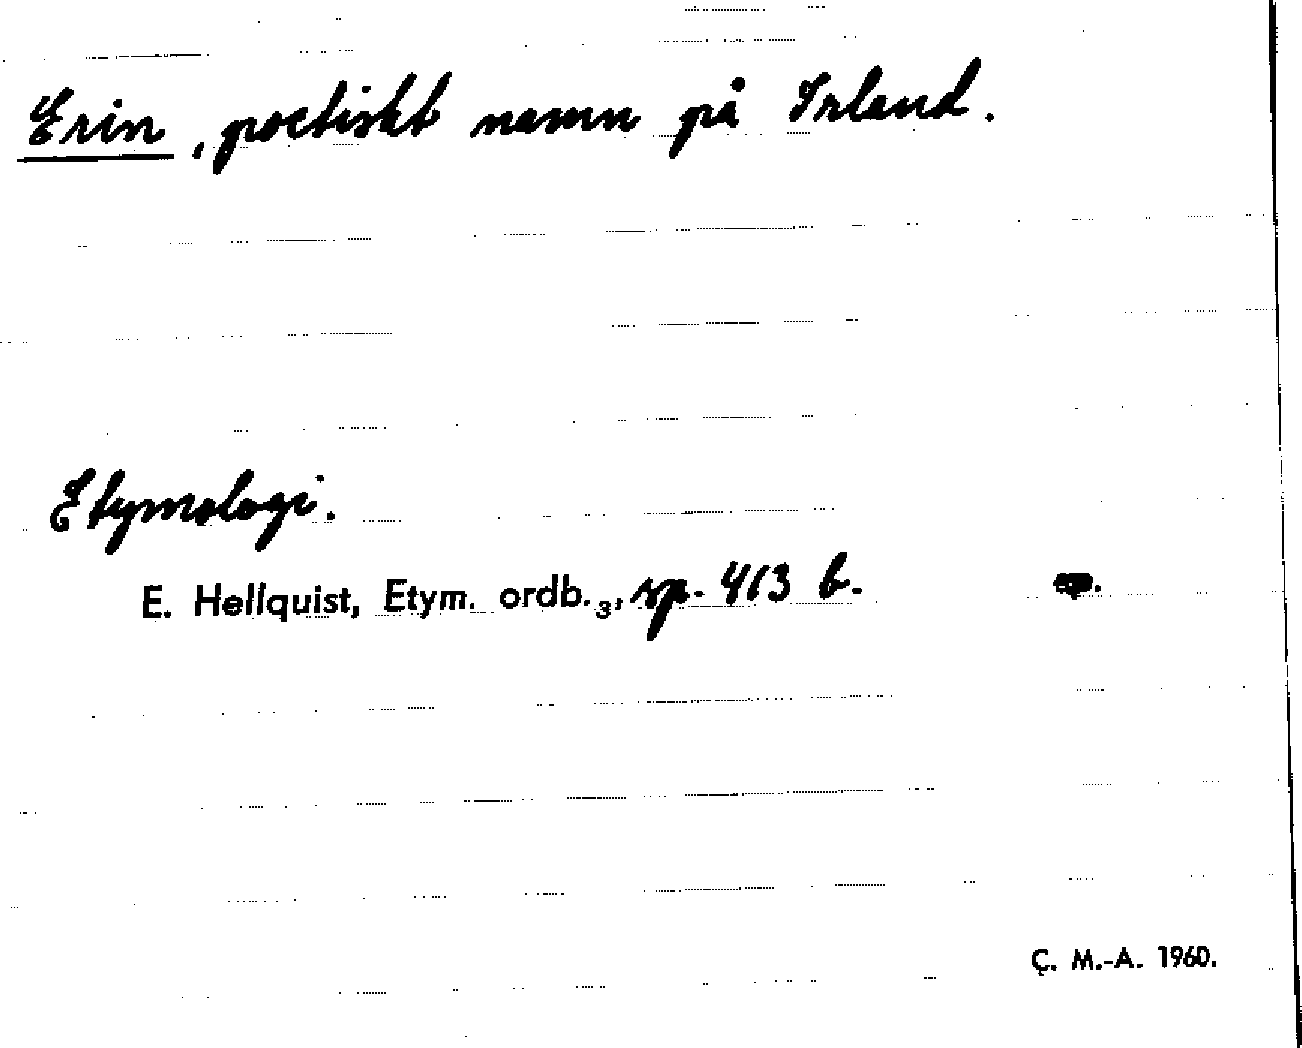 Erin, poetiskt namn på Irland.
Etymologi.
E. Hellquist, Etym. ordb.₃, sp. 413 b.
Ç. M.-A. 1960.